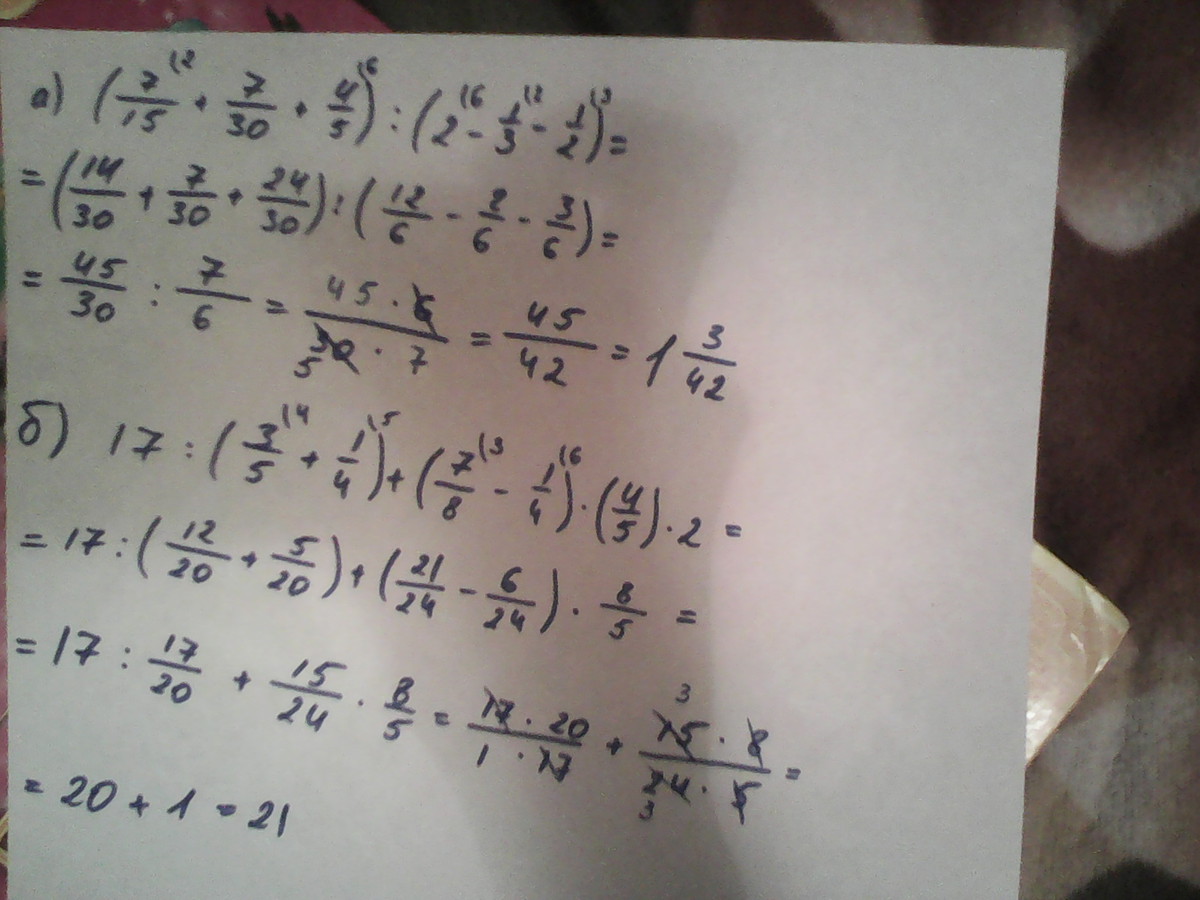 а) (7/15 (2 + 7/30 + 4/5 (6) : (2 (6 - 1/3 (2 - 1/2 (3) =
= (14/30 + 7/30 + 24/30) : (12/6 - 2/6 - 3/6) =
= 45/30 : 7/6 = 45 · 6 / 30 5 · 7 = 45/42 = 1 3/42
б) 17 : (3/5 (4 + 1/4 (5) + (7/8 (3 - 1/4 (6) · (4/5) · 2 =
= 17 : (12/20 + 5/20) + (21/24 - 6/24) · 8/5 =
= 17 : 17/20 + 15/24 · 8/5 = 17 · 20 / 1 · 17 + 15 3 · 8 / 24 3 · 5 =
= 20 + 1 = 21